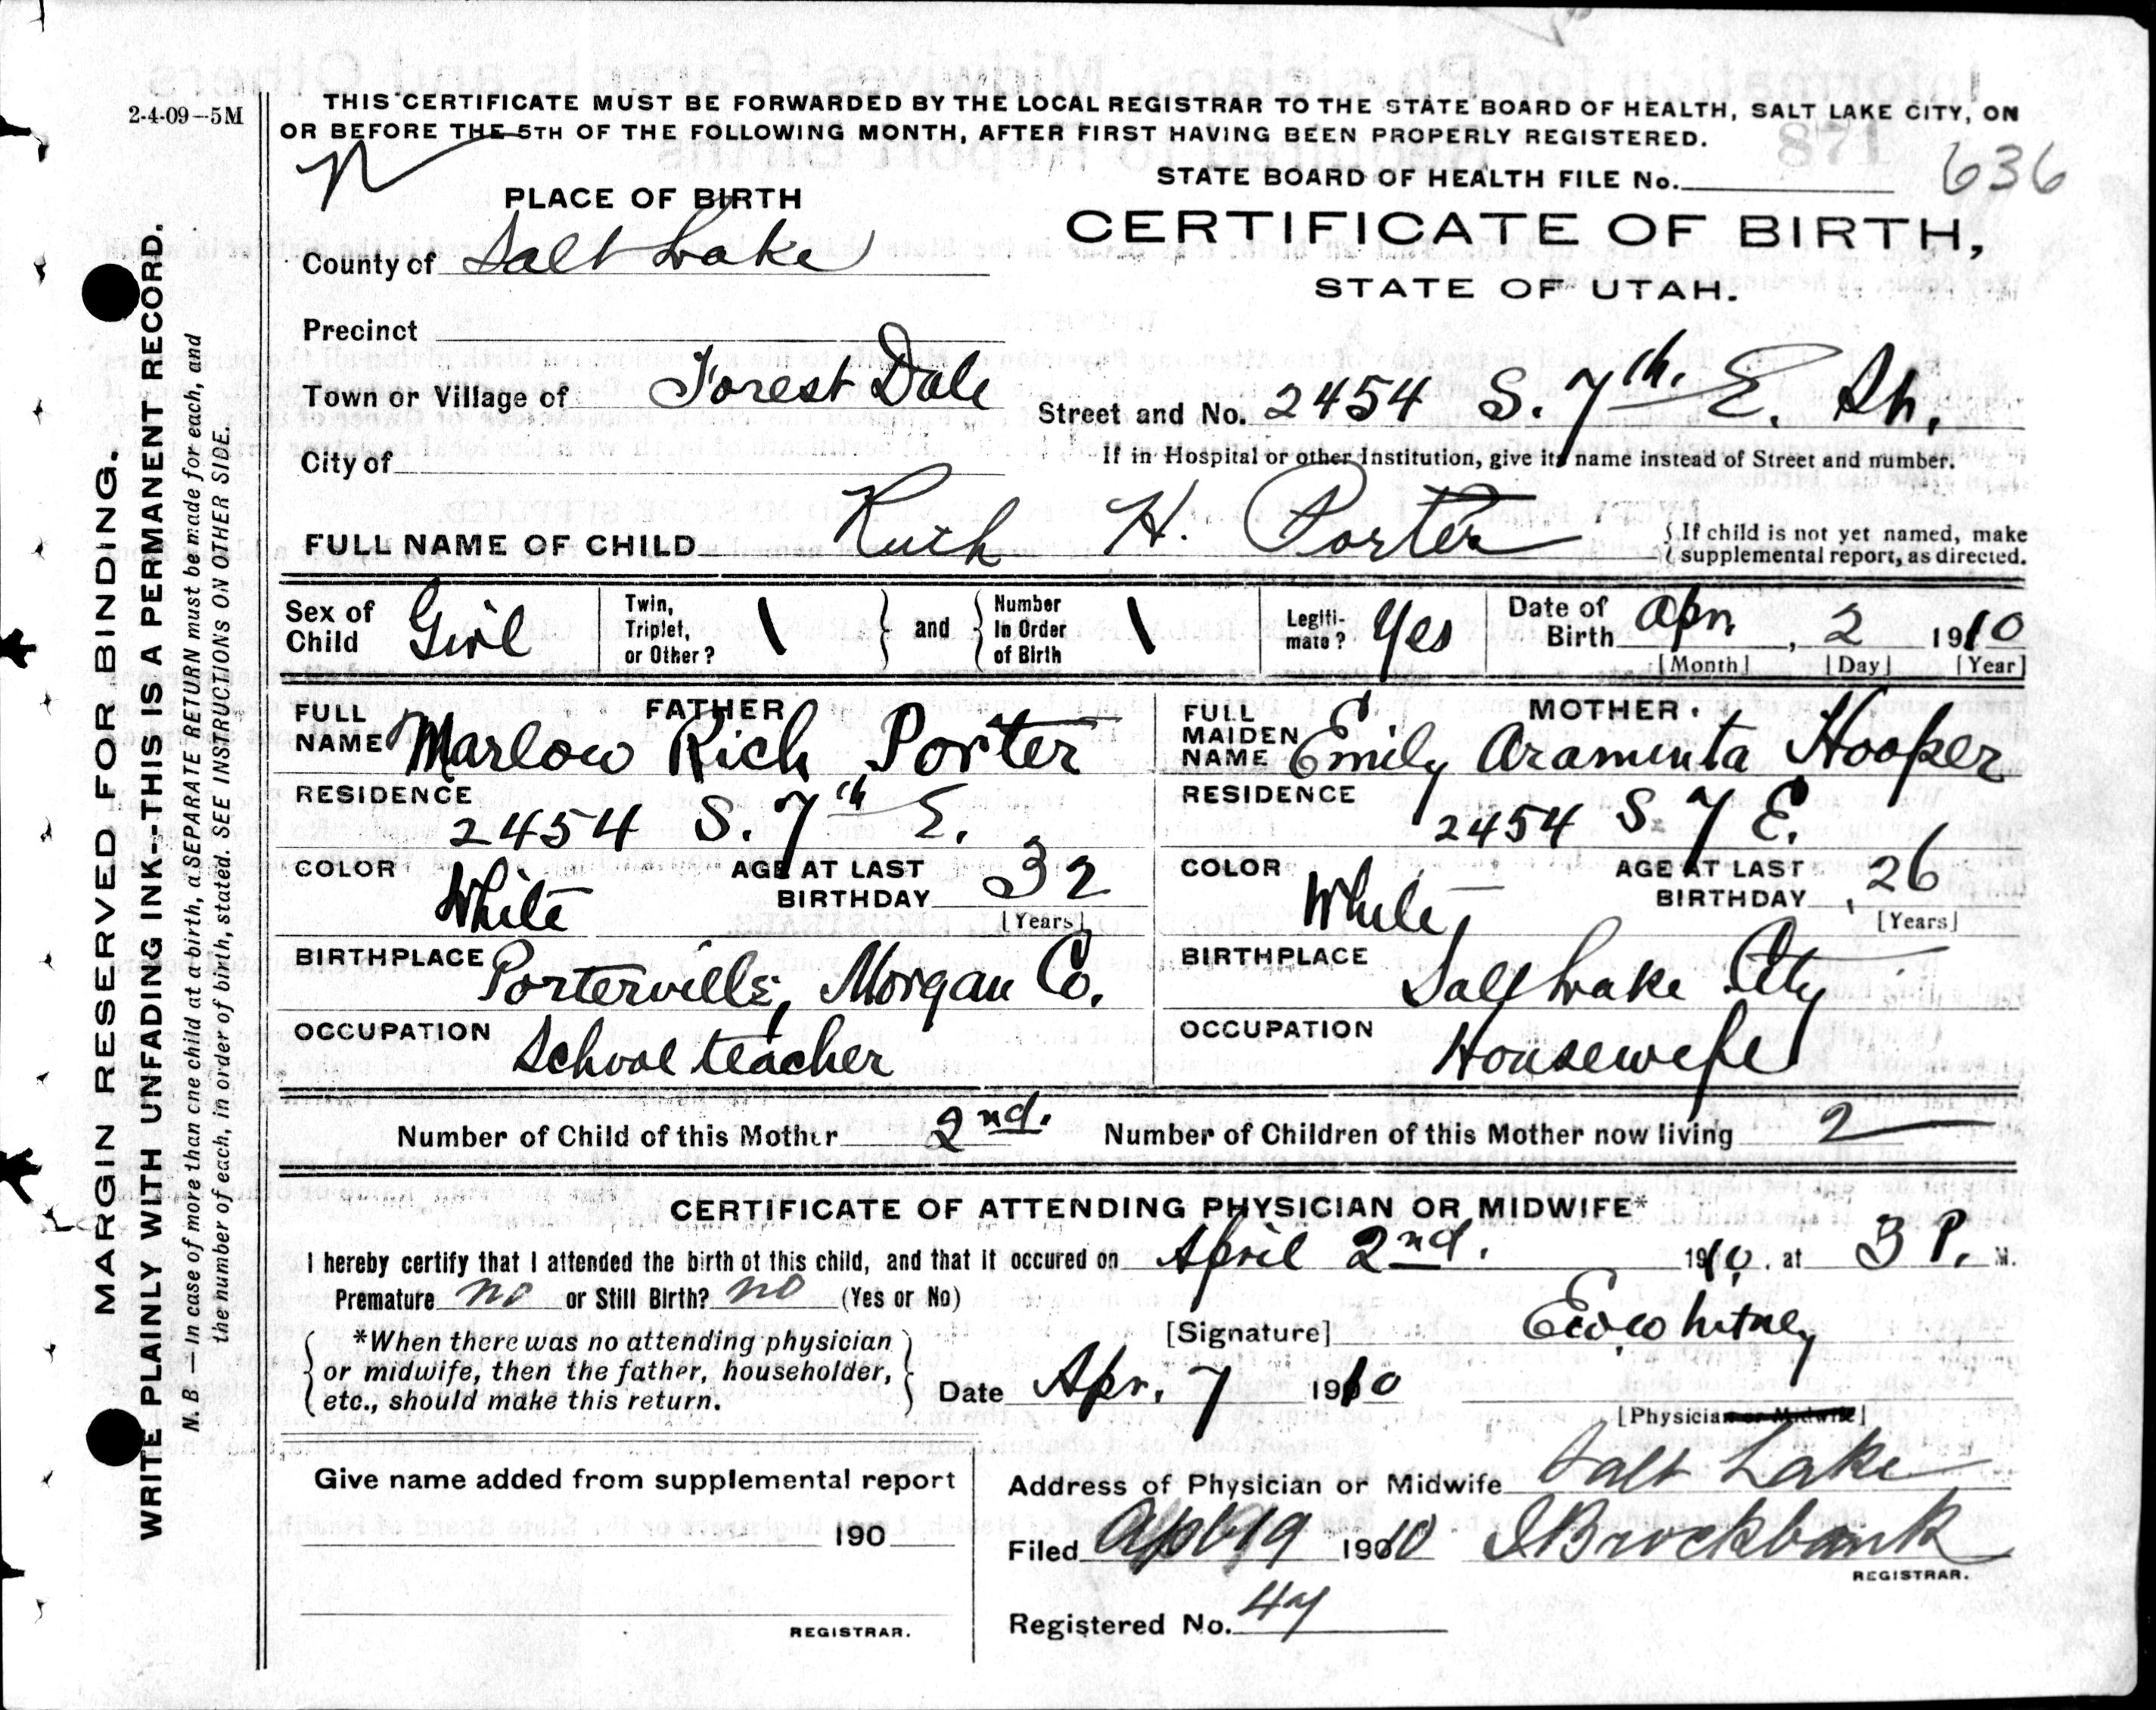 2-4-09--5M
THIS CERTIFICATE MUST BE FORWARDED BY THE LOCAL REGISTRAR TO THE STATE BOARD OF HEALTH, SALT LAKE CITY, ON
OR BEFORE THE 5TH OF THE FOLLOWING MONTH, AFTER FIRST HAVING BEEN PROPERLY REGISTERED.
STATE BOARD OF HEALTH FILE No. 636
PLACE OF BIRTH
CERTIFICATE OF BIRTH,
STATE OF UTAH.
County of Salt Lake
Precinct
Town or Village of Forest Dale
Street and No. 2454 S. 7th. E. St.
City of
If in Hospital or other Institution, give its name instead of Street and number.
FULL NAME OF CHILD Ruth H. Porter
{ If child is not yet named, make
{ supplemental report, as directed.
Sex of Child Girl
Twin, Triplet, or Other? 1
and
Number In Order of Birth 1
Legiti-mate? Yes
Date of Birth Apr. , 2 1910
[Month] [Day] [Year]
FATHER
FULL NAME Marlow Rich Porter
RESIDENCE
2454 S. 7th E.
COLOR White
AGE AT LAST BIRTHDAY 32
[Years]
BIRTHPLACE Porterville, Morgan Co.
OCCUPATION School teacher
MOTHER.
FULL MAIDEN NAME Emily Araminta Hooper
RESIDENCE
2454 S. 7 E.
COLOR White
AGE AT LAST BIRTHDAY 26
[Years]
BIRTHPLACE Salt Lake City
OCCUPATION Housewife
Number of Child of this Mother 2nd.
Number of Children of this Mother now living 2
CERTIFICATE OF ATTENDING PHYSICIAN OR MIDWIFE*
I hereby certify that I attended the birth of this child, and that it occured on April 2nd. 1910. at 3 P. M.
Premature no or Still Birth? no (Yes or No)
*When there was no attending physician
or midwife, then the father, householder,
etc., should make this return.
[Signature] Whitney
Date Apr. 7 1910
[Physician or Midwife]
Give name added from supplemental report
190
REGISTRAR.
Address of Physician or Midwife Salt Lake
Filed 1910 Brockbank
REGISTRAR.
Registered No.
MARGIN RESERVED FOR BINDING.
WRITE PLAINLY WITH UNFADING INK--THIS IS A PERMANENT RECORD.
N. B.—In case of more than one child at a birth, a SEPARATE RETURN must be made for each, and
the number of each, in order of birth, stated. SEE INSTRUCTIONS ON OTHER SIDE.